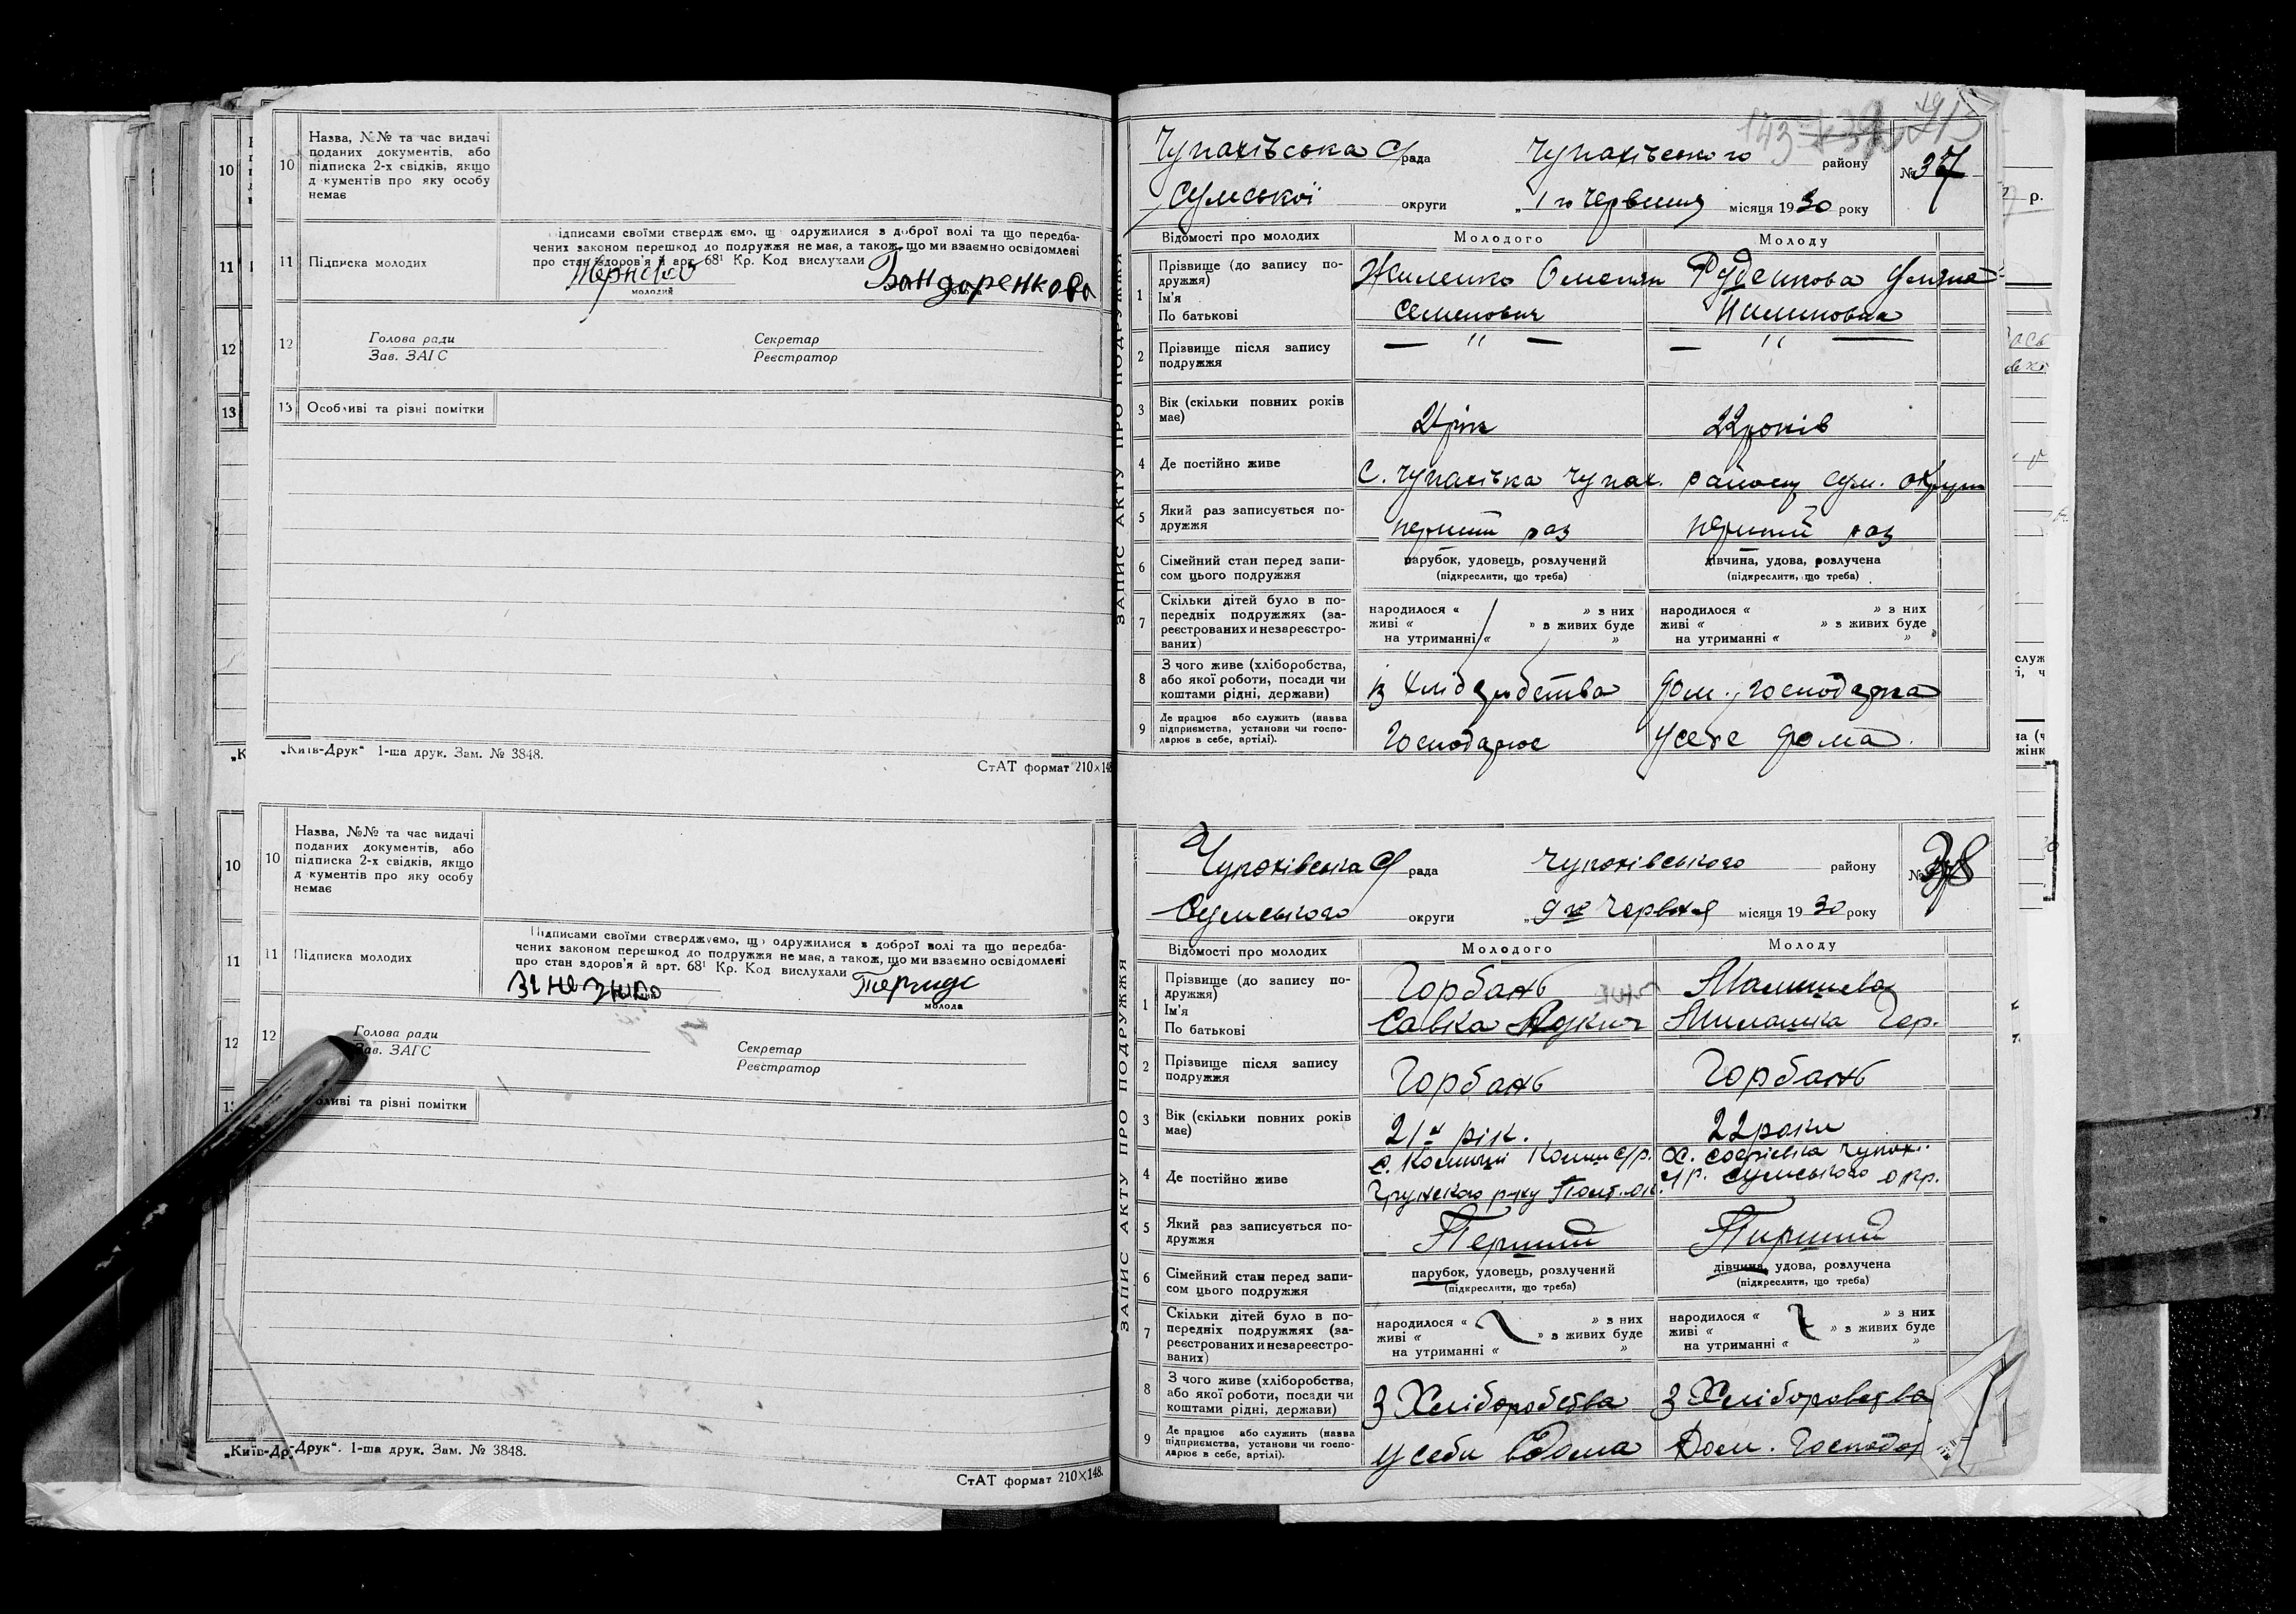 10 Назва, №№ та час видачі
поданих документів, або
підписка 2-х свідків, якщо
д кументів про яку особу
немає
11 Підписка молодих
ідписами своїми ствердж ємо, щ одружилися з доброї волі та що передба-
чених законом перешкод до подружжя не має, а також, що ми взаємно освідомлені
про стан здоров'я й арт. 68¹ Кр. Код вислухали
молодий
Бондоренкова
12 Голова ради
Зав. ЗАГС
Секретар
Реєстратор
13 Особливі та різні помітки
„Київ-Друк“ 1-ша друк. Зам. № 3848.
СтАТ формат 210×148
10 Назва, №№ та час видачі
поданих документів, або
підписка 2-х свідків, якщо
д кументів про яку особу
немає
11 Підписка молодих
Підписами своїми стверджуємо, що одружилися з доброї волі та що передба-
чених законом перешкод до подружжя не має, а також, що ми взаємно освідомлені
про стан здоров'я й арт. 68¹ Кр. Код вислухали
молода
12 Голова ради
Зав. ЗАГС
Секретар
Реєстратор
ливі та різні помітки
„Київ-Др„-Друк“. 1-ша друк. Зам. № 3848.
СтАТ формат 210×148.
ЗАПИС АКТУ ПРО ПОДРУЖЖЯ
143
Чупахівська С/рада Чупахівського району № 37
Сумської округи „1 го червня місяця 1930 року
Відомості про молодих Молодого Молоду
1 Прізвище (до запису по-
дружжя)
Ім'я
По батькові
Жиленко Омелян
Семенович
Руденкова Уляна
2 Прізвище після запису
подружжя
— " —
— " —
3 Вік (скільки повних років
має)
21 рік
22 років
4 Де постійно живе
с. Чупахівка Чупах. району Сум. округи
5 Який раз записується по-
дружжя
перший раз
перший раз
6 Сімейний стан перед запи-
сом цього подружжя
парубок, удовець, розлучений
(підкреслити, що треба)
дівчина, удова, розлучена
(підкреслити, що треба)
7 Скільки дітей було в по-
передніх подружжях (за-
реєстрованих и незареєстро-
ваних)
народилося « » з них
живі « » в живих буде
на утриманні « »
народилося « » з них
живі « » в живих буде
на утриманні « »
8 З чого живе (хліборобства,
або якої роботи, посади чи
коштами рідні, держави)
із хліборобства
дом. господарка
9 Де працює або служить (назва
підприємства, установи чи госпо-
дарює в себе, артілі).
Господарює
У себе дома.
ЗАПИС АКТУ ПРО ПОДРУЖЖЯ
Чупохівська С/рада Чупохівського району № 38
Сумського округи „9 го Червня місяця 1930 року
Відомості про молодих Молодого Молоду
1 Прізвище (до запису по-
дружжя)
Ім'я
По батькові
Горбань
Савка
Малишева
Милашка Гер.
2 Прізвище після запису
подружжя
Горбань
Горбань
3 Вік (скільки повних років
має)
21й рік.
22 роки
4 Де постійно живе
Х. Софіївка Чупохі.
р. Сумського окр.
5 Який раз записується по-
дружжя
Перший
Пирший
6 Сімейний стан перед запи-
сом цього подружжя
парубок, удовець, розлучений
(підкреслити, що треба)
дівчина, удова, розлучена
(підкреслити, що треба)
7 Скільки дітей було в по-
передніх подружжях (за-
реєстрованих и незареєстро-
ваних)
народилося « » з них
живі « » в живих буде
на утриманні « »
народилося « » з них
живі « » в живих буде
на утриманні « »
8 З чого живе (хліборобства,
або якої роботи, посади чи
коштами рідні, держави)
З Хліборобства
З Хліборовства
9 Де працює або служить (назва
підприємства, установи чи госпо-
дарює в себе, артілі).
У себи вдома
Дом. Господар